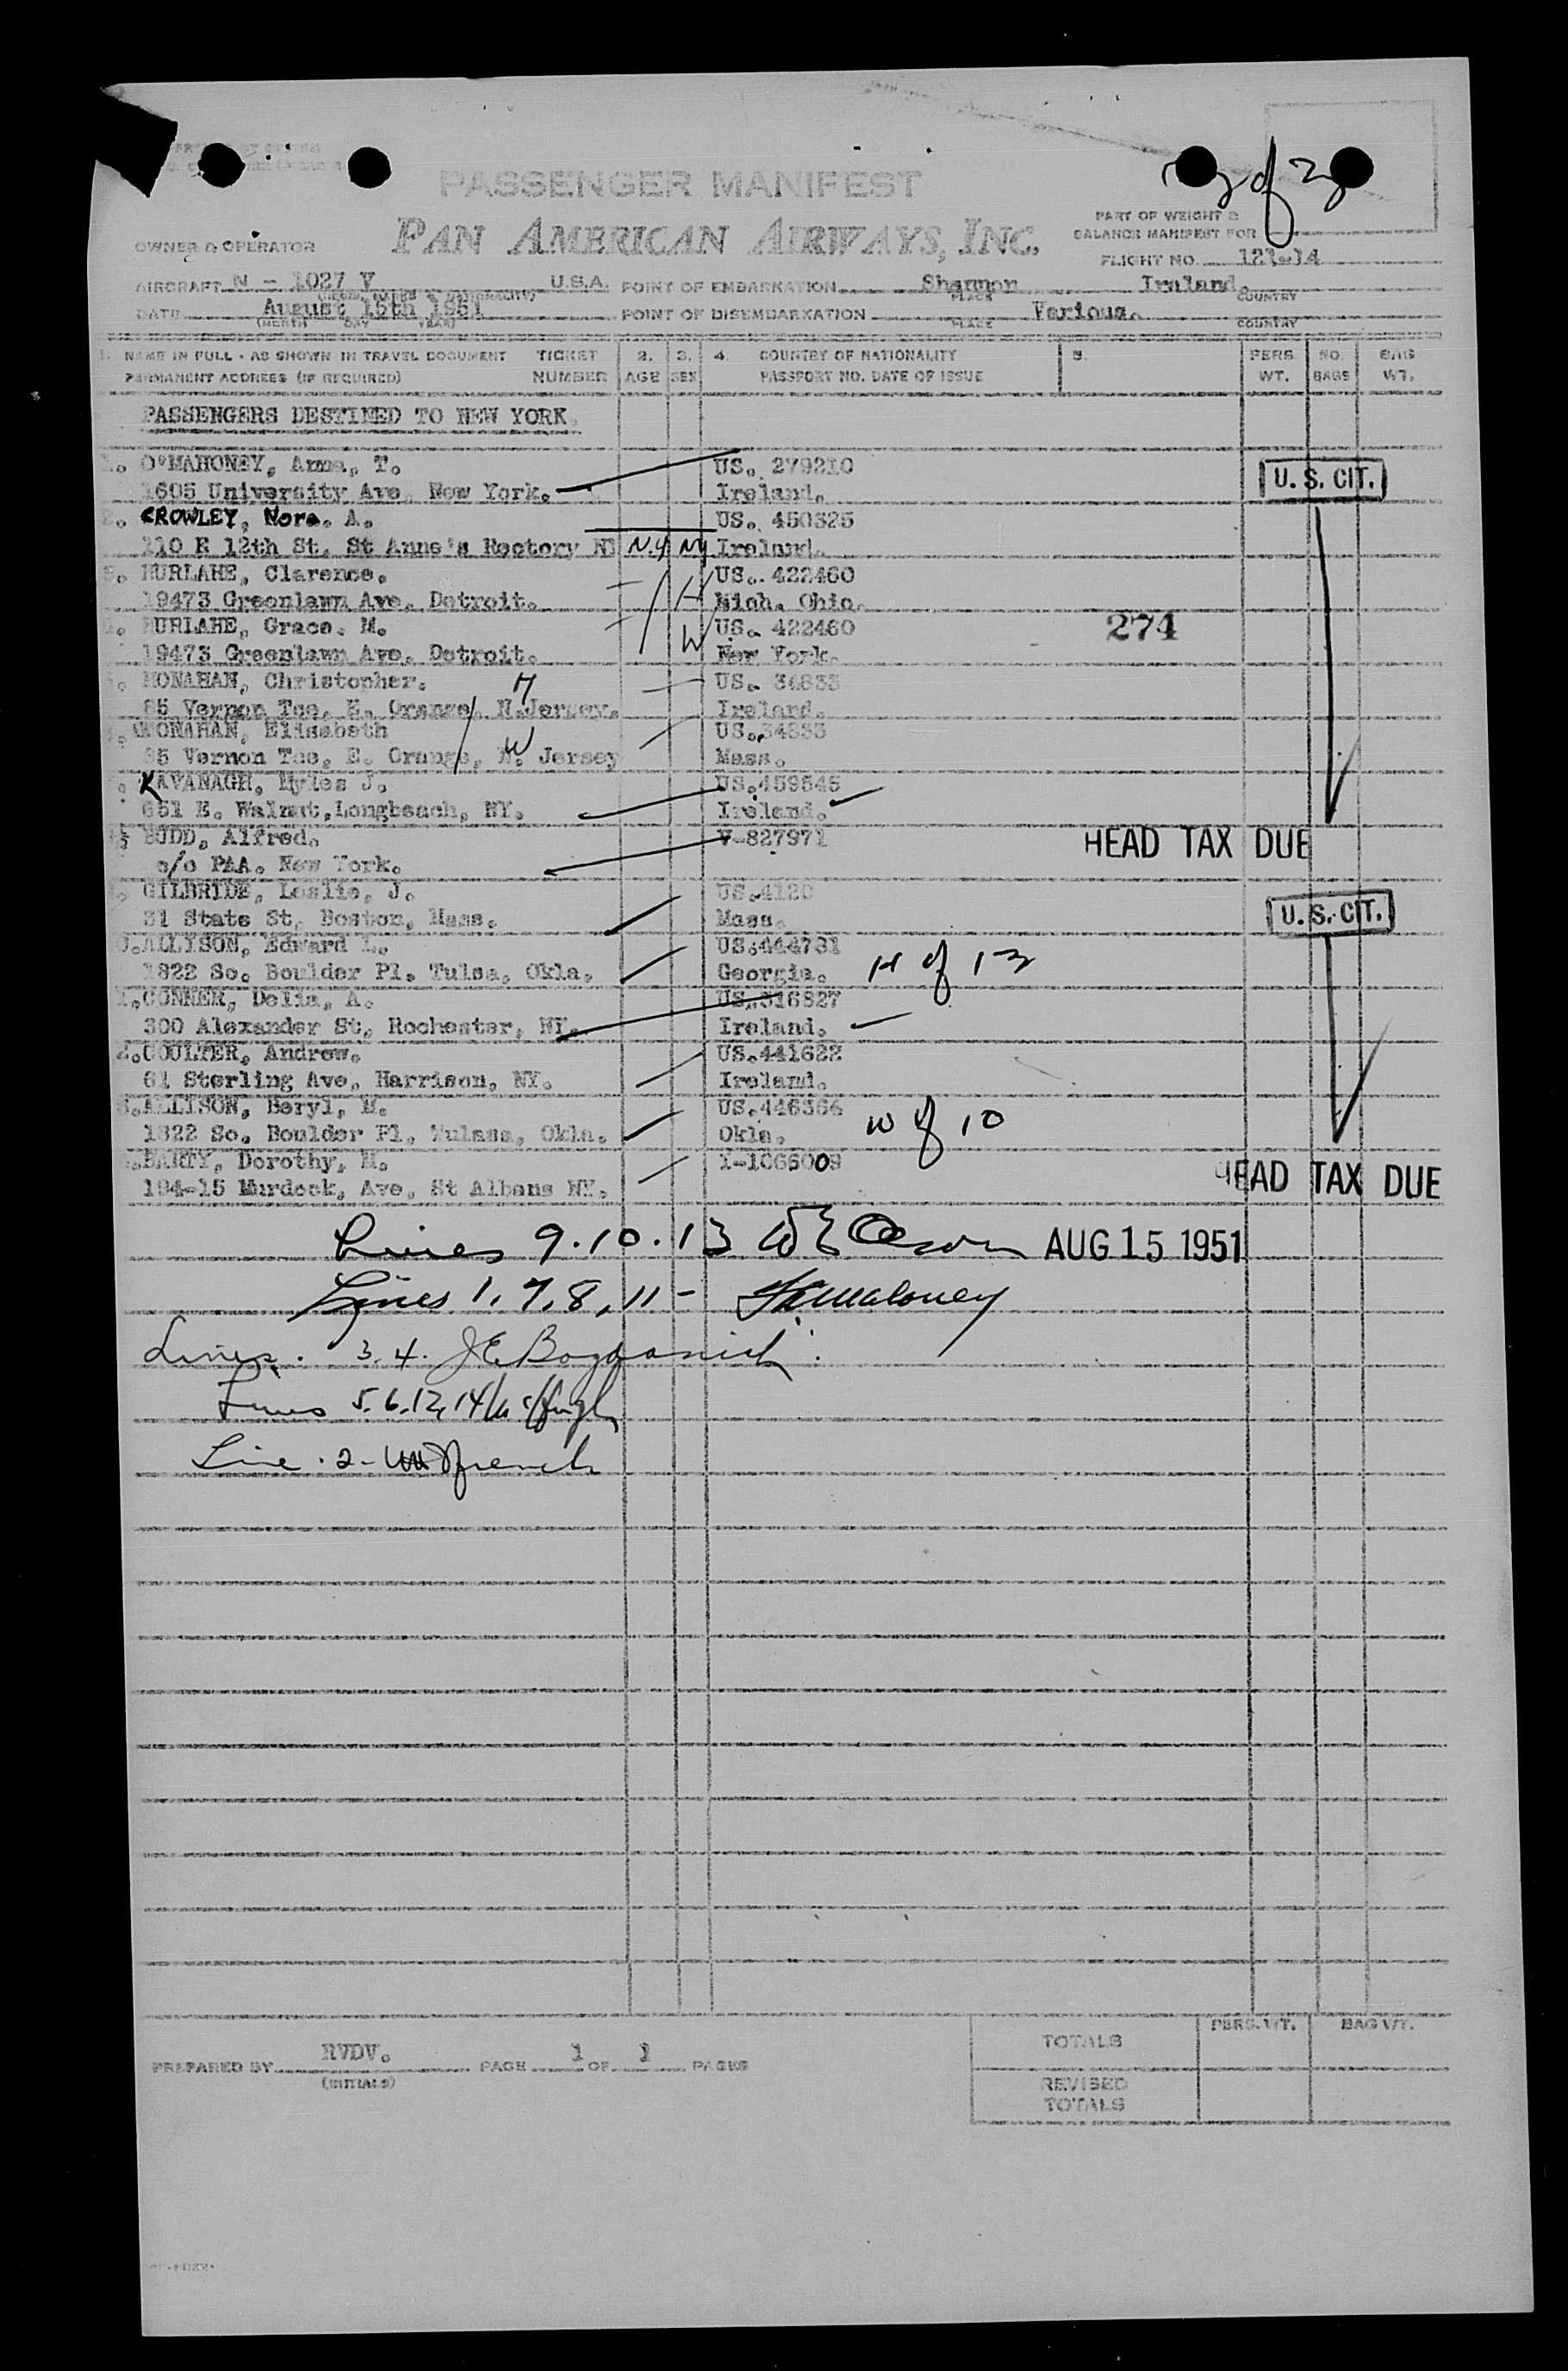 2 of 2
PASSENGER MANIFEST
PAN AMERICAN AIRWAYS, INC.
OWNER & OPERATOR
PART OF WEIGHT &
BALANCE MANIFEST FOR
FLIGHT NO. 121-14
AIRCRAFT N - 1027 V U.S.A. POINT OF EMBARKATION Shannon Ireland.
PLACE COUNTRY
DATE August 15th 1951 POINT OF DISEMBARKATION Various.
(MONTH DAY YEAR) PLACE COUNTRY
1. NAME IN FULL - AS SHOWN IN TRAVEL DOCUMENT TICKET 2. 3. 4. COUNTRY OF NATIONALITY 5. PERS. NO. BAG
PERMANENT ADDRESS (IF REQUIRED) NUMBER AGE SEX PASSPORT NO. DATE OF ISSUE WT. BAGS WT.
PASSENGERS DESTINED TO NEW YORK.
O'MAHONEY, Anna, T. US. 279210
1605 University Ave, New York. Ireland. U.S. CIT.
CROWLEY, Nora. A. US. 450325
110 E 12th St, St Anne's Rectory NY N.Y NY Ireland.
BURLAHE, Clarence. US. 422460
19473 Greenlawn Ave, Detroit. H Mich. Ohio.
BURLAHE, Grace. M. US. 422460 274
19473 Greenlawn Ave, Detroit. W New York.
MONAHAN, Christopher. H US. 34833
85 Vernon Tce, E. Orange, N.Jersey. Ireland.
MONAHAN, Elisabeth US. 34833
85 Vernon Tce, E. Orange, N. Jersey W Mass.
KAVANAGH, Myles J. US.459545
651 E. Walnut, Longbeach, NY. Ireland.
BUDD, Alfred. V-827971 HEAD TAX DUE
c/o PAA. New York.
GILBRIDE, Leslie, J. US.4120
31 State St, Boston, Mass. Mass. U.S. CIT.
ALLISON, Edward L. US.444731
1822 So. Boulder Pl, Tulsa, Okla. Georgia. H of 13
CONNER, Delia, A. US.316827
300 Alexander St, Rochester, NY. Ireland.
COULTER, Andrew. US.441622
61 Sterling Ave, Harrison, NY. Ireland.
ALLISON, Beryl, M. US.446366
1822 So. Boulder Pl, Tulasa, Okla. Okla. W of 10
BARTY, Dorothy, M. I-1066009
194-15 Murdock, Ave, St Albans NY. HEAD TAX DUE
Lines 9.10.13 AUG 15 1951
Lines 1, 7, 8, 11 - Maloney
Lines. 3.4. J E Bogdanich
Lines 5.6.12, 14
Line. 2- French
PREPARED BY RVDV. PAGE 1 OF 1 PAGES
(INITIALS)
TOTALS PERS. WT. BAG WT.
REVISED
TOTALS